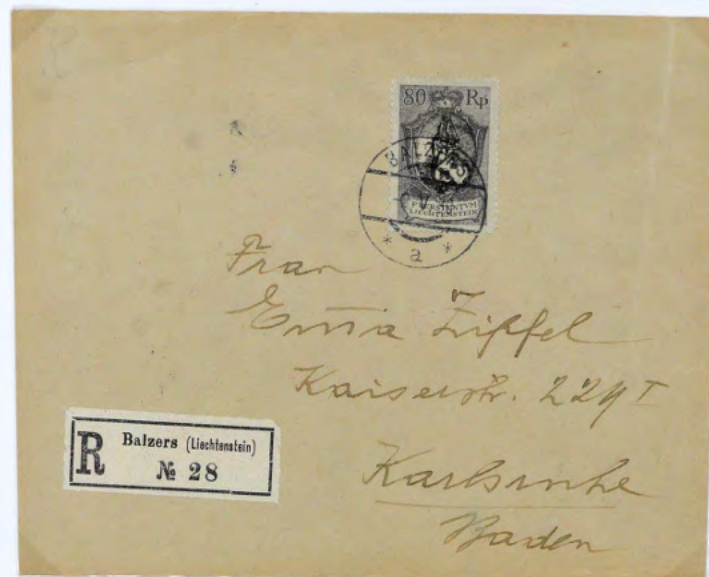 80 Rp
BALZERS
FÜRSTENTVM
LIECHTENSTEIN
* a *
Frau
Emma Zipfel
Kaiserstr. 229 I
Karlsruhe
Baden
R Balzers (Liechtenstein)
№ 28